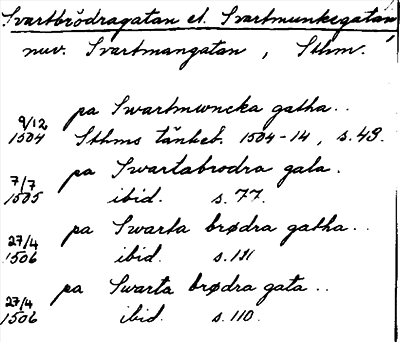 Svartbrödragatan el. Svartmunkegatan,
nuv. Svartmangatan, Sthm.
9/12 pa Swartmwncka gatha..
1504 Sthms tänkeb. 1504-14, s. 43.
7/7 pa Swartabrodra gata.
1505 ibid. s. 77.
27/4 pa Swarta brødra gatha..
1506 ibid. s. 111
27/4 pa Swarta brødra gata..
1506 ibid. s. 110.